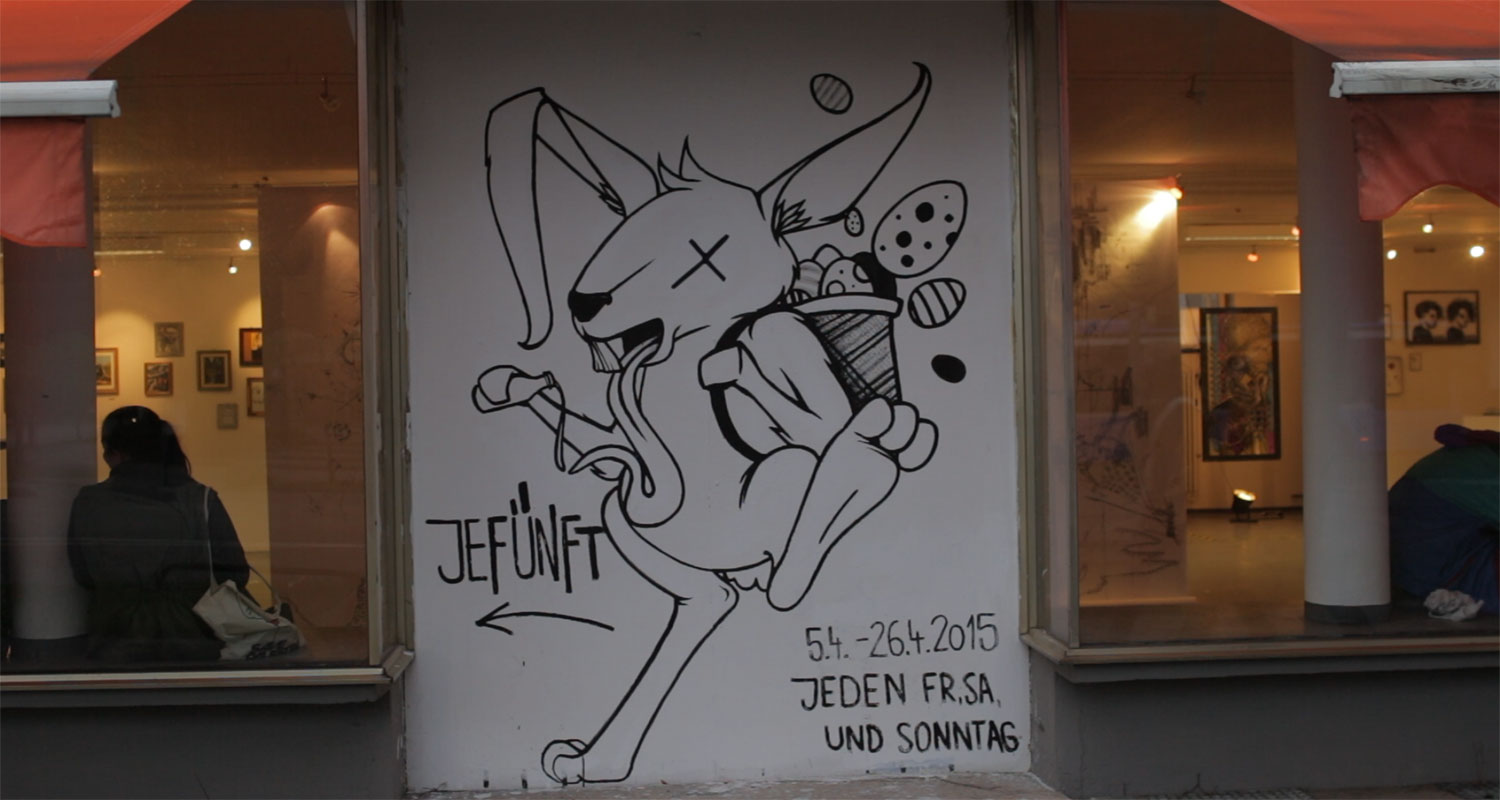 JEFÜNFT
5.4.-26.4.2015
JEDEN FR,SA,
UND SONNTAG